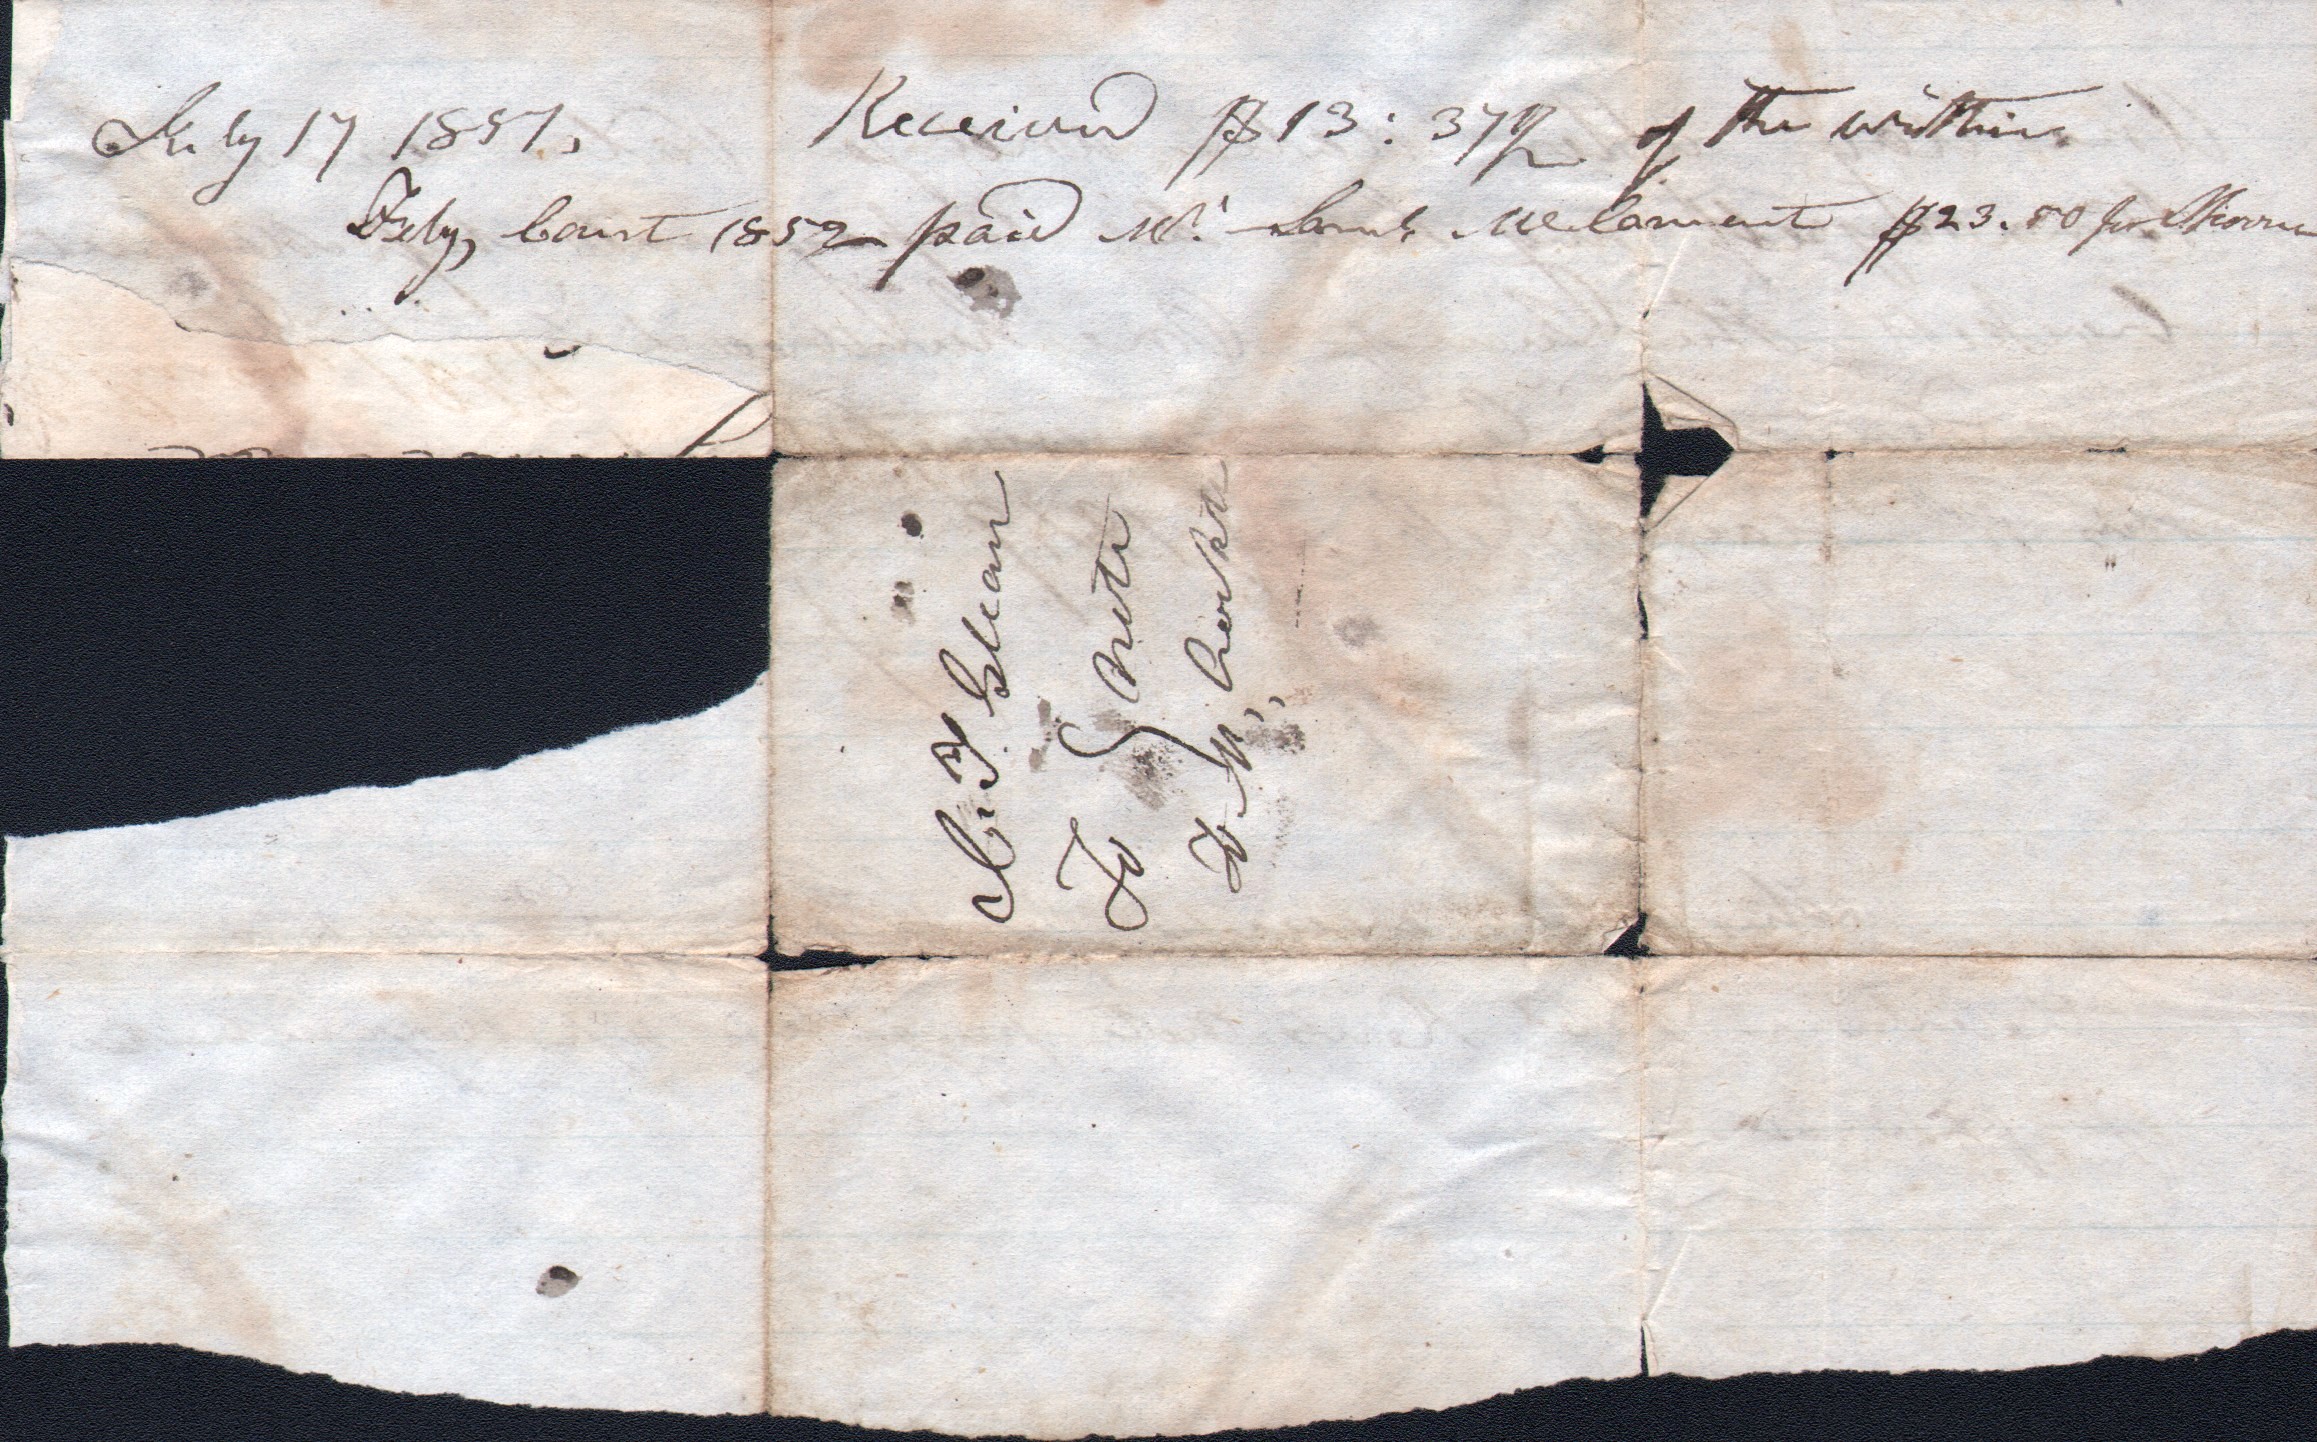 July 17 1851, Received $13:37½ of the within
Feby, Court 1852 paid Mr. Saml. $23.50 for
C. T. Glean
To } Note
D. M,,